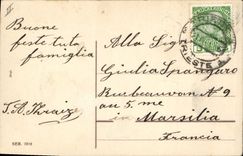 Buone
feste tuta
famiglia
Alla Sig
Giulia Spangaro
Rue beauvon No 9
au 5 me
in Marsilia
Francia
TRIESTE